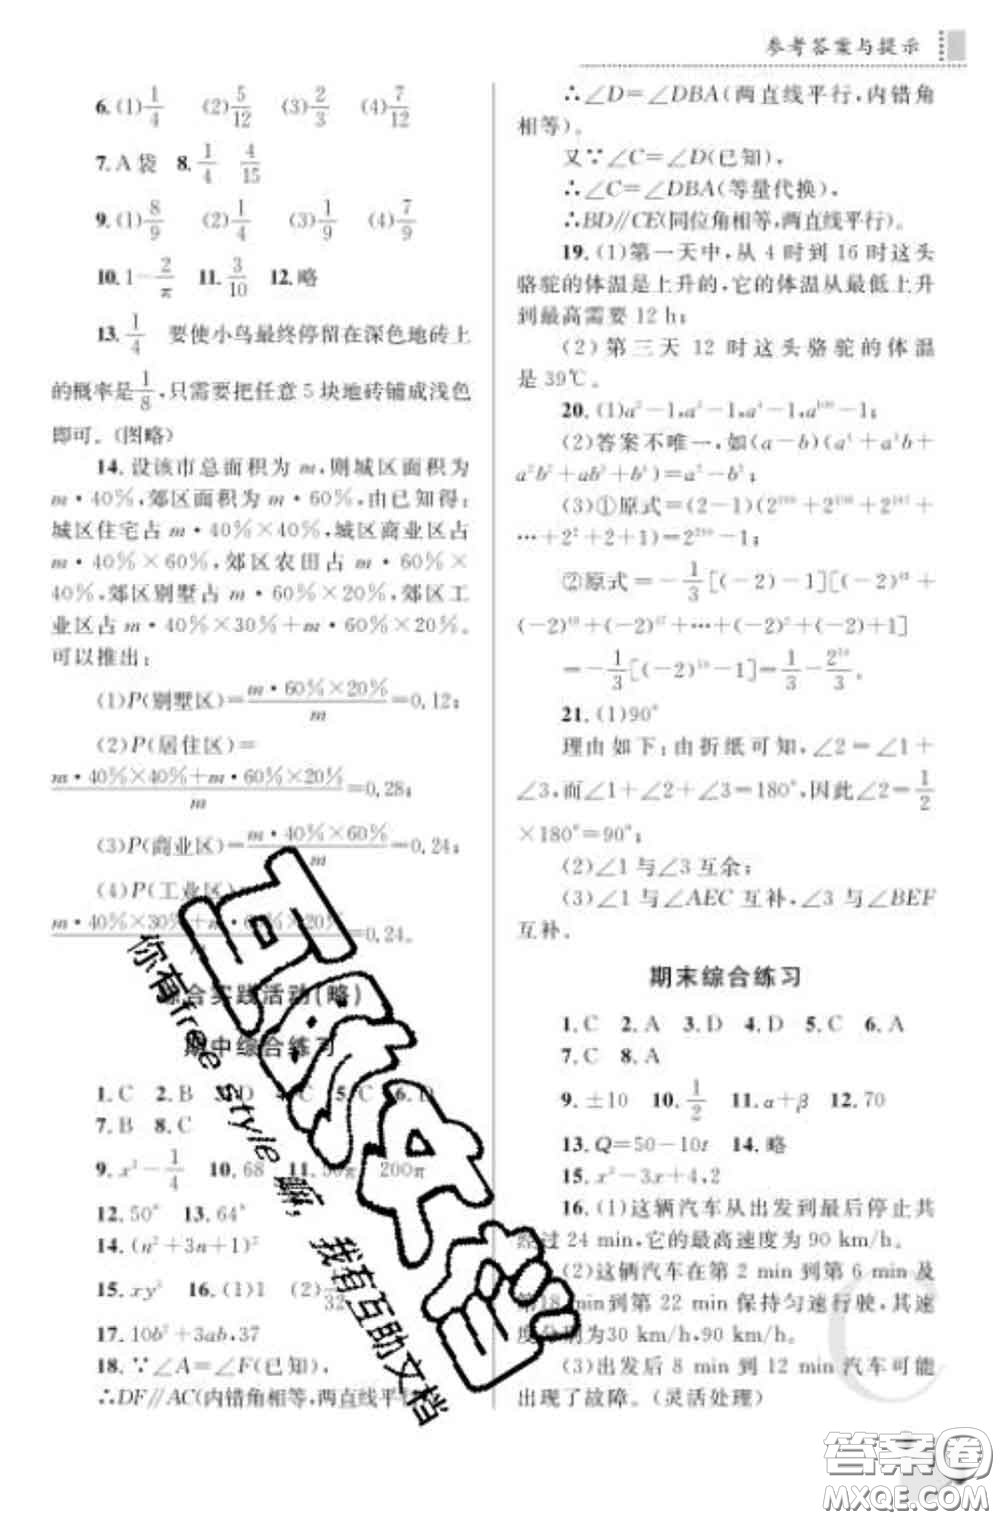 参考答案与提示
6.(1)1/4 (2)5/12 (3)2/3 (4)7/12
7.A袋 8.1/4 4/15
9.(1)8/9 (2)1/4 (3)1/9 (4)7/9
10.1-2/π 11.3/10 12.略
13.1/4 要使小鸟最终停留在深色地砖上
的概率是1/8,只需要把任意5块地砖铺成浅色
即可。(图略)
14.设该市总面积为m,则城区面积为
m·40%,郊区面积为m·60%,由已知得:
城区住宅占m·40%×40%,城区商业区占
m·40%×60%,郊区农田占m·60%×
40%,郊区别墅占m·60%×20%,郊区工
业区占m·40%×30%+m·60%×20%。
可以推出:
(1)P(别墅区)=m·60%×20%/m=0.12;
(2)P(居住区)=
m·40%×40%+m·60%×20%/m=0.28;
(3)P(商业区)=m·40%×60%/m=0.24;
(4)P(工业区)
m·40%×30%+m·60%×20%/m=0.24。
综合实践活动(略)
期中综合练习
1.C 2.B 3.D 4.C 5.C 6.D
7.B 8.C
9.x²-1/4 10.68 11. 200π
12.50° 13.64°
14.(n²+3n+1)²
15.xy² 16.(1)1 (2) /32
17.10b²+3ab,37
18.∵∠A=∠F(已知),
∴DF∥AC(内错角相等,两直线平行)
∴∠D=∠DBA(两直线平行,内错角
相等)。
又∵∠C=∠D(已知),
∴∠C=∠DBA(等量代换),
∴BD∥CE(同位角相等,两直线平行)。
19.(1)第一天中,从4时到16时这头
骆驼的体温是上升的,它的体温从最低上升
到最高需要12 h;
(2)第三天12时这头骆驼的体温
是39℃。
20.(1)a²-1,a³-1,a⁴-1,a¹⁰⁰-1;
(2)答案不唯一,如(a-b)(a⁴+a³b+
a²b²+ab³+b⁴)=a⁵-b⁵;
(3)①原式=(2-1)(
…+2²+2+1)=
②原式=-1/3[(-2)-1][(-2)
…+(-2)³+(-2)²+(-2)+1]
21.(1)90°
理由如下:由折纸可知,∠2=∠1+
∠3,而∠1+∠2+∠3=180°,因此∠2=1/2
×180°=90°;
(2)∠1与∠3互余;
(3)∠1与∠AEC互补,∠3与∠BEF
互补。
期末综合练习
1.C 2.A 3.D 4.D 5.C 6.A
7.C 8.A
9.±10 10.1/2 11.α+β 12.70
13.Q=50-10t 14.略
15.x²-3x+4,2
16.(1)这辆汽车从出发到最后停止共
经过24 min,它的最高速度为90 km/h。
(2)这辆汽车在第2 min到第6 min及
第18 min到第22 min保持匀速行驶,其速
度分别为30 km/h,90 km/h。
(3)出发后8 min到12 min汽车可能
出现了故障。(灵活处理)
你有free style嘛,我有互助文档
答案圈
MXQE.COM